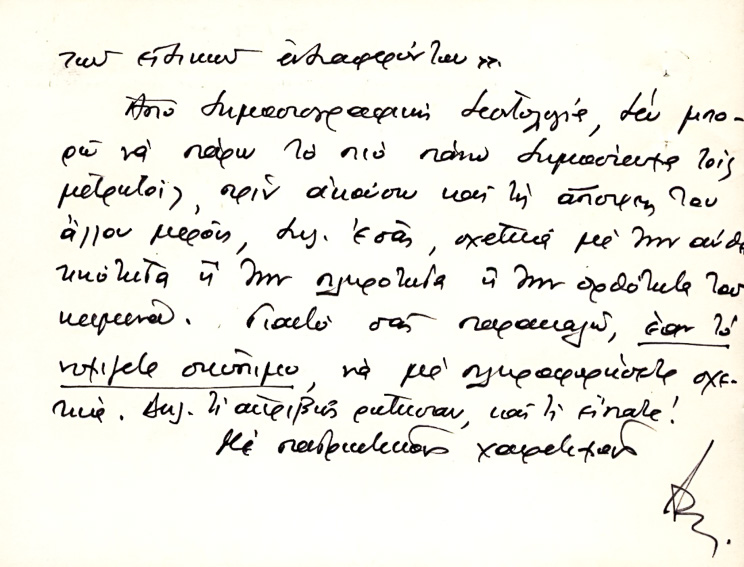 των ειδικών ενδιαφερόντων».
Από δημοσιογραφική δεοντολογία, δέν μπο-
ρώ νά πάρω τό πιό πάνω δημοσίευμα τοῖς
μετρητοῖς, πρίν ἀκούσω καί τή ἄποψη του
ἄλλου μέρους, δηλ. ἐσᾶς, σχετικά μέ τήν αὐθε
ντικότητα ἤ τήν πληρότητα ἤ τήν ὀρθότητα του
κειμένου. Γιαυτό σᾶς παρακαλῶ, ἐάν τό
νομίζετε σκόπιμο, νά μέ πληροφορήσετε σχε-
τικά. Δηλ. τί ἀκριβῶς ρώτησαν, καί τί εἴπατε!
Μέ πατριωτικούς χαιρετισμούς